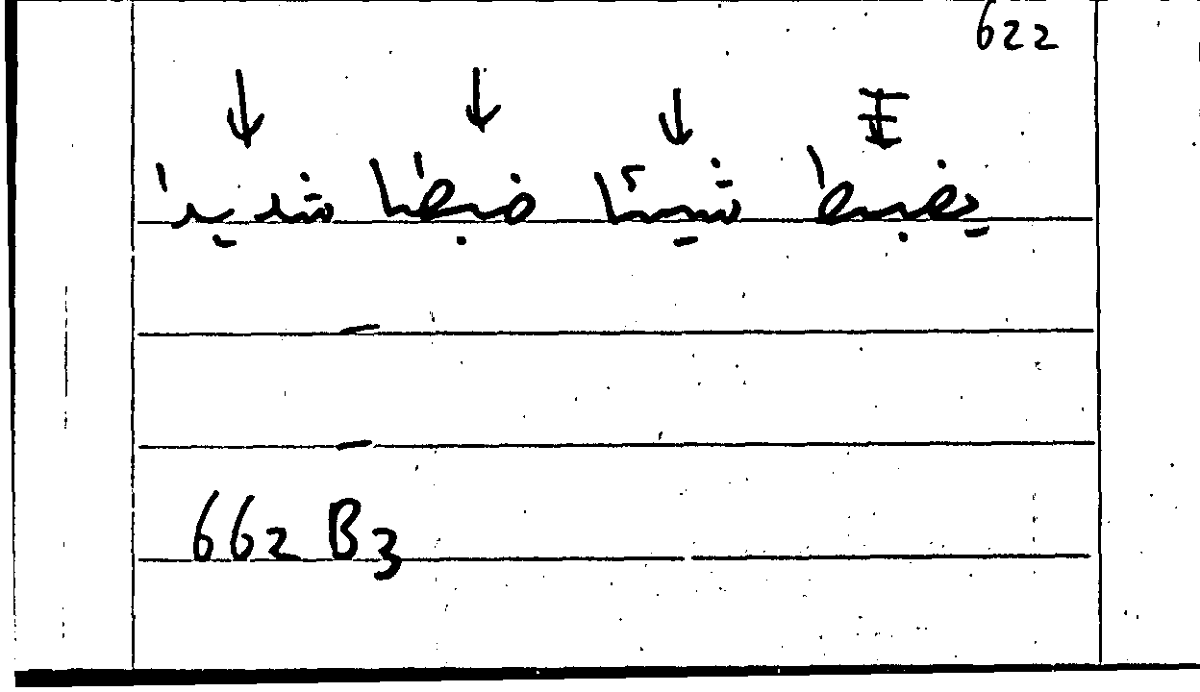 622
يضبط شيئا ضبطا شديدا
662 B3